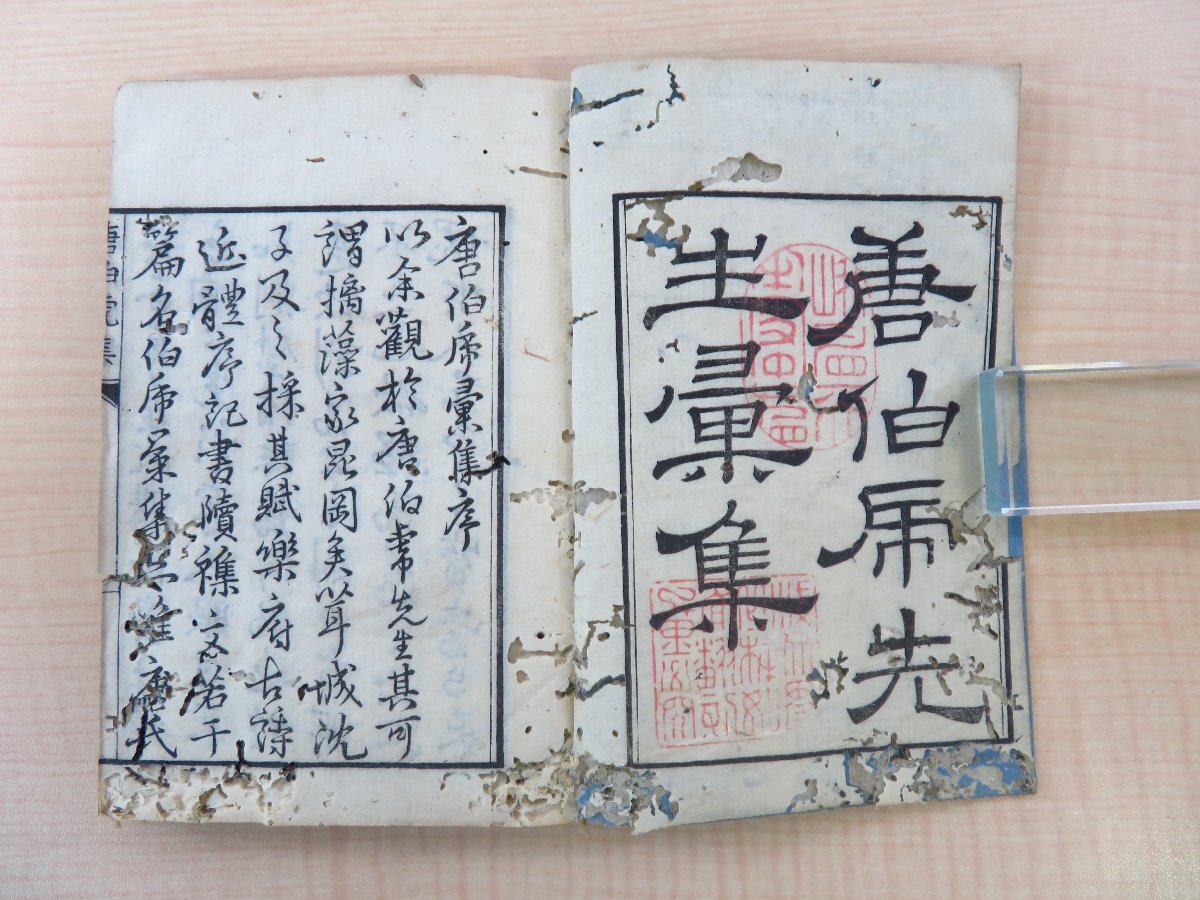 唐伯虎先
生彙集
唐伯虎彙集序
以余觀於唐伯虎先生其可
謂摛藻家昆岡矣茸城沈
子及之採其賦樂府古詩
近體序記書牘襍文若干
篇名伯虎彙集 唐氏
唐伯虎集